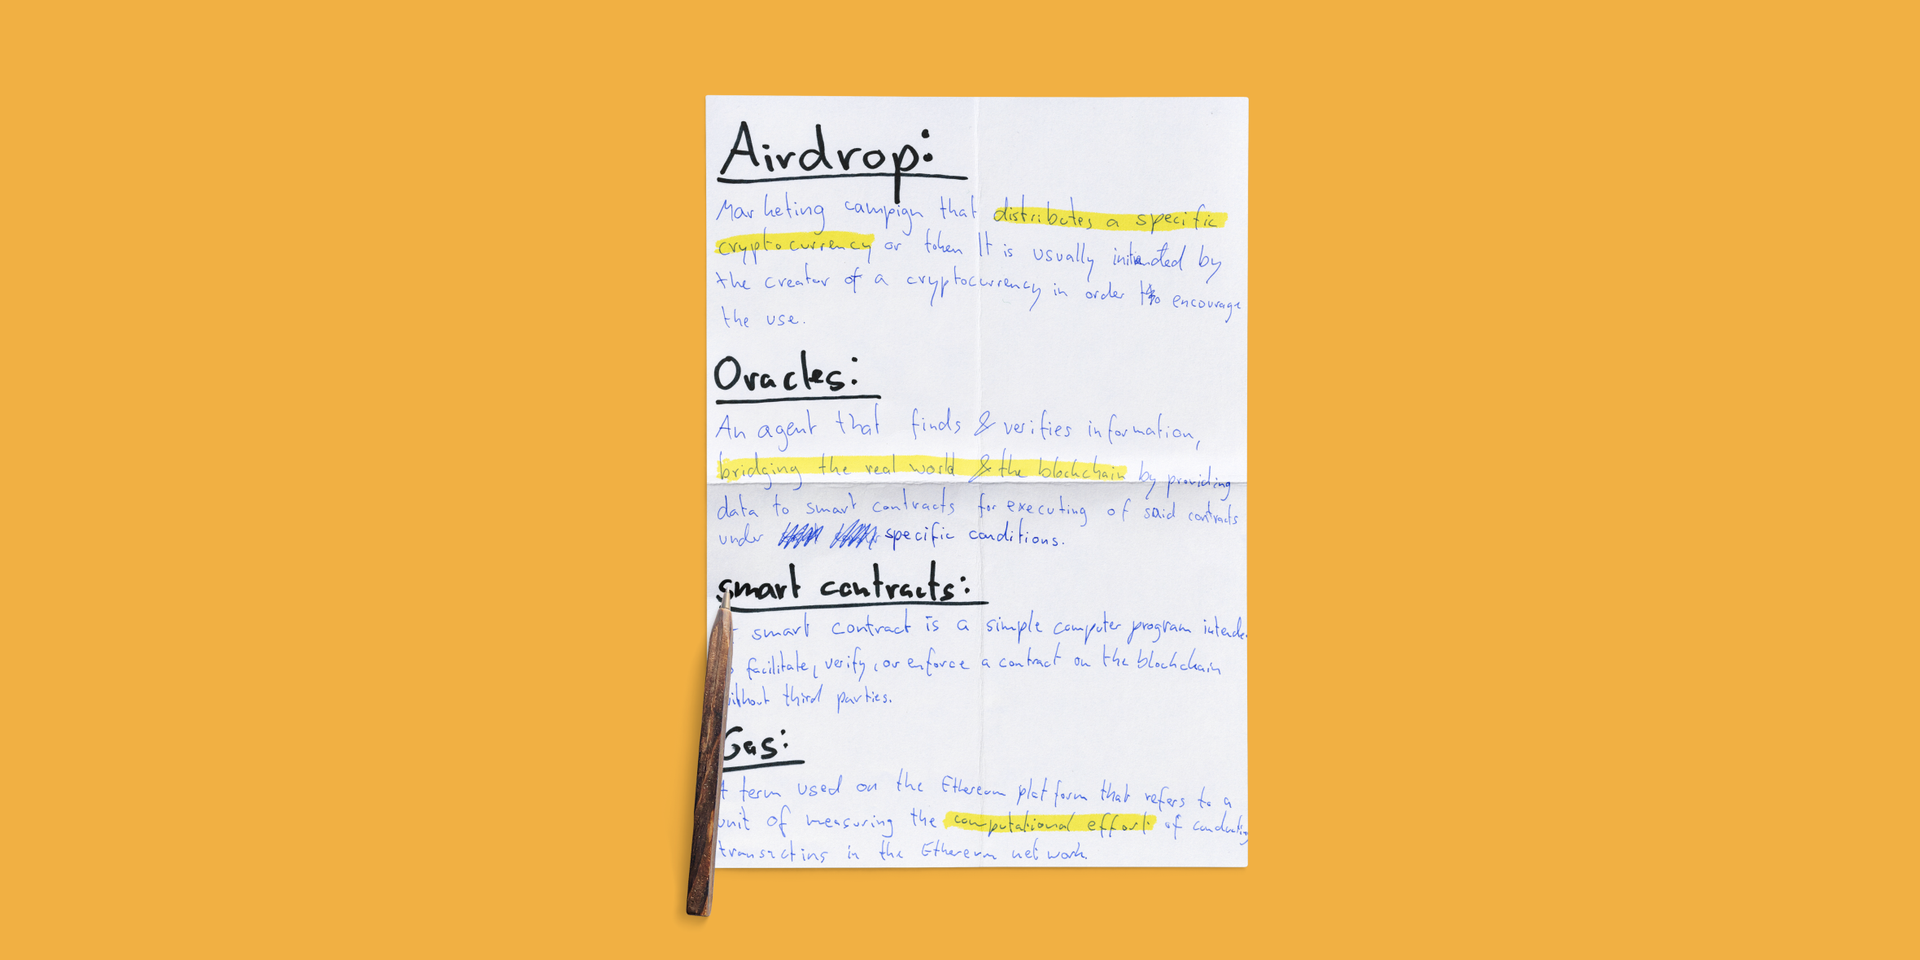 Airdrop:
Marketing campaign that distributes a specific
cryptocurrency or token It is usually by
the creator of a cryptocurrency in order to encourage
the use.
Oracles:
An agent that finds & verifies information,
bridging the real world & the blockchain by providing
data to smart contracts for executing of said contracts
under specific conditions.
smart contracts:
smart contract is a simple computer program intende
facilitate, verify, or enforce a contract on the blockchain
without third parties.
Gas:
A term used on the Ethereum platform that refers to a
unit of measuring the computational effort of conducting
transactins in the Ethereum network.